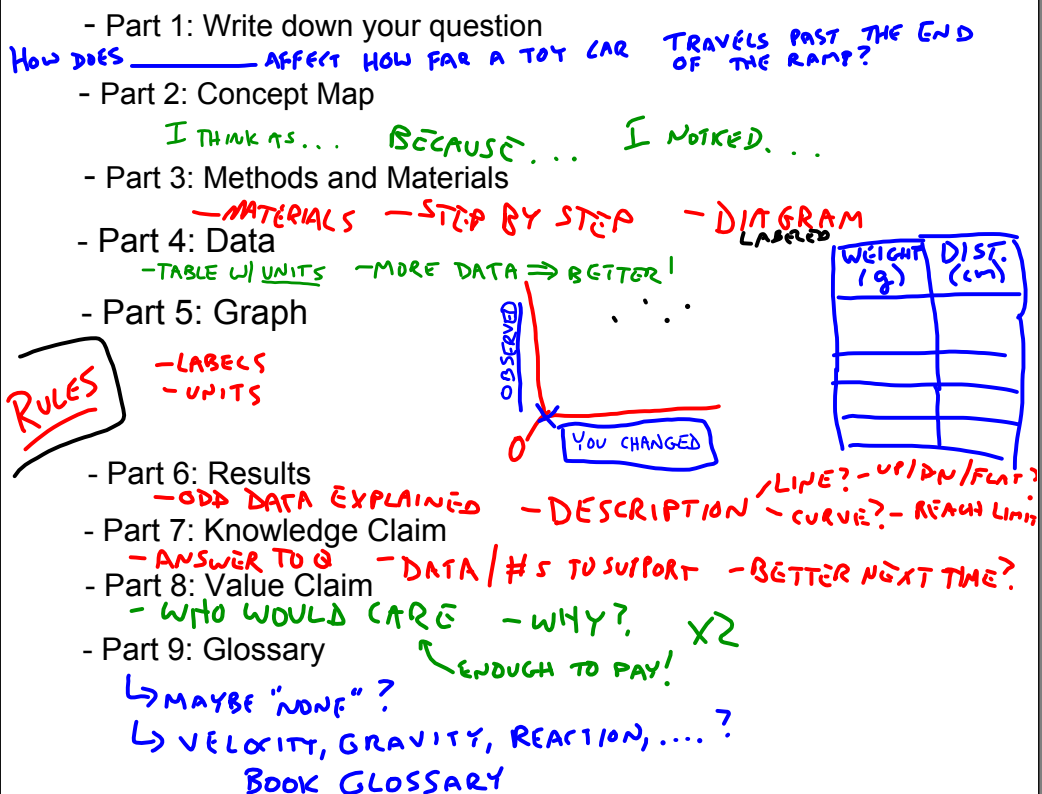 - Part 1: Write down your question
HOW DOES ________ AFFECT HOW FAR A TOY CAR TRAVELS PAST THE END OF THE RAMP?
- Part 2: Concept Map
I THINK AS... BECAUSE... I NOTICED...
- Part 3: Methods and Materials
- MATERIALS - STEP BY STEP - DIAGRAM
LABELED
- Part 4: Data
- TABLE W/ UNITS - MORE DATA ⇒ BETTER!
WEIGHT (g) DIST. (cm)
- Part 5: Graph
RULES
- LABELS
- UNITS
OBSERVED
0
YOU CHANGED
- Part 6: Results
- ODD DATA EXPLAINED - DESCRIPTION
LINE? - UP/DN/FLAT?
- CURVE? - REACH LIMIT
- Part 7: Knowledge Claim
- ANSWER TO Q - DATA/#S TO SUPPORT - BETTER NEXT TIME?
- Part 8: Value Claim
- WHO WOULD CARE - WHY? X2
ENOUGH TO PAY!
- Part 9: Glossary
↳ MAYBE "NONE"?
↳ VELOCITY, GRAVITY, REACTION, ....?
BOOK GLOSSARY